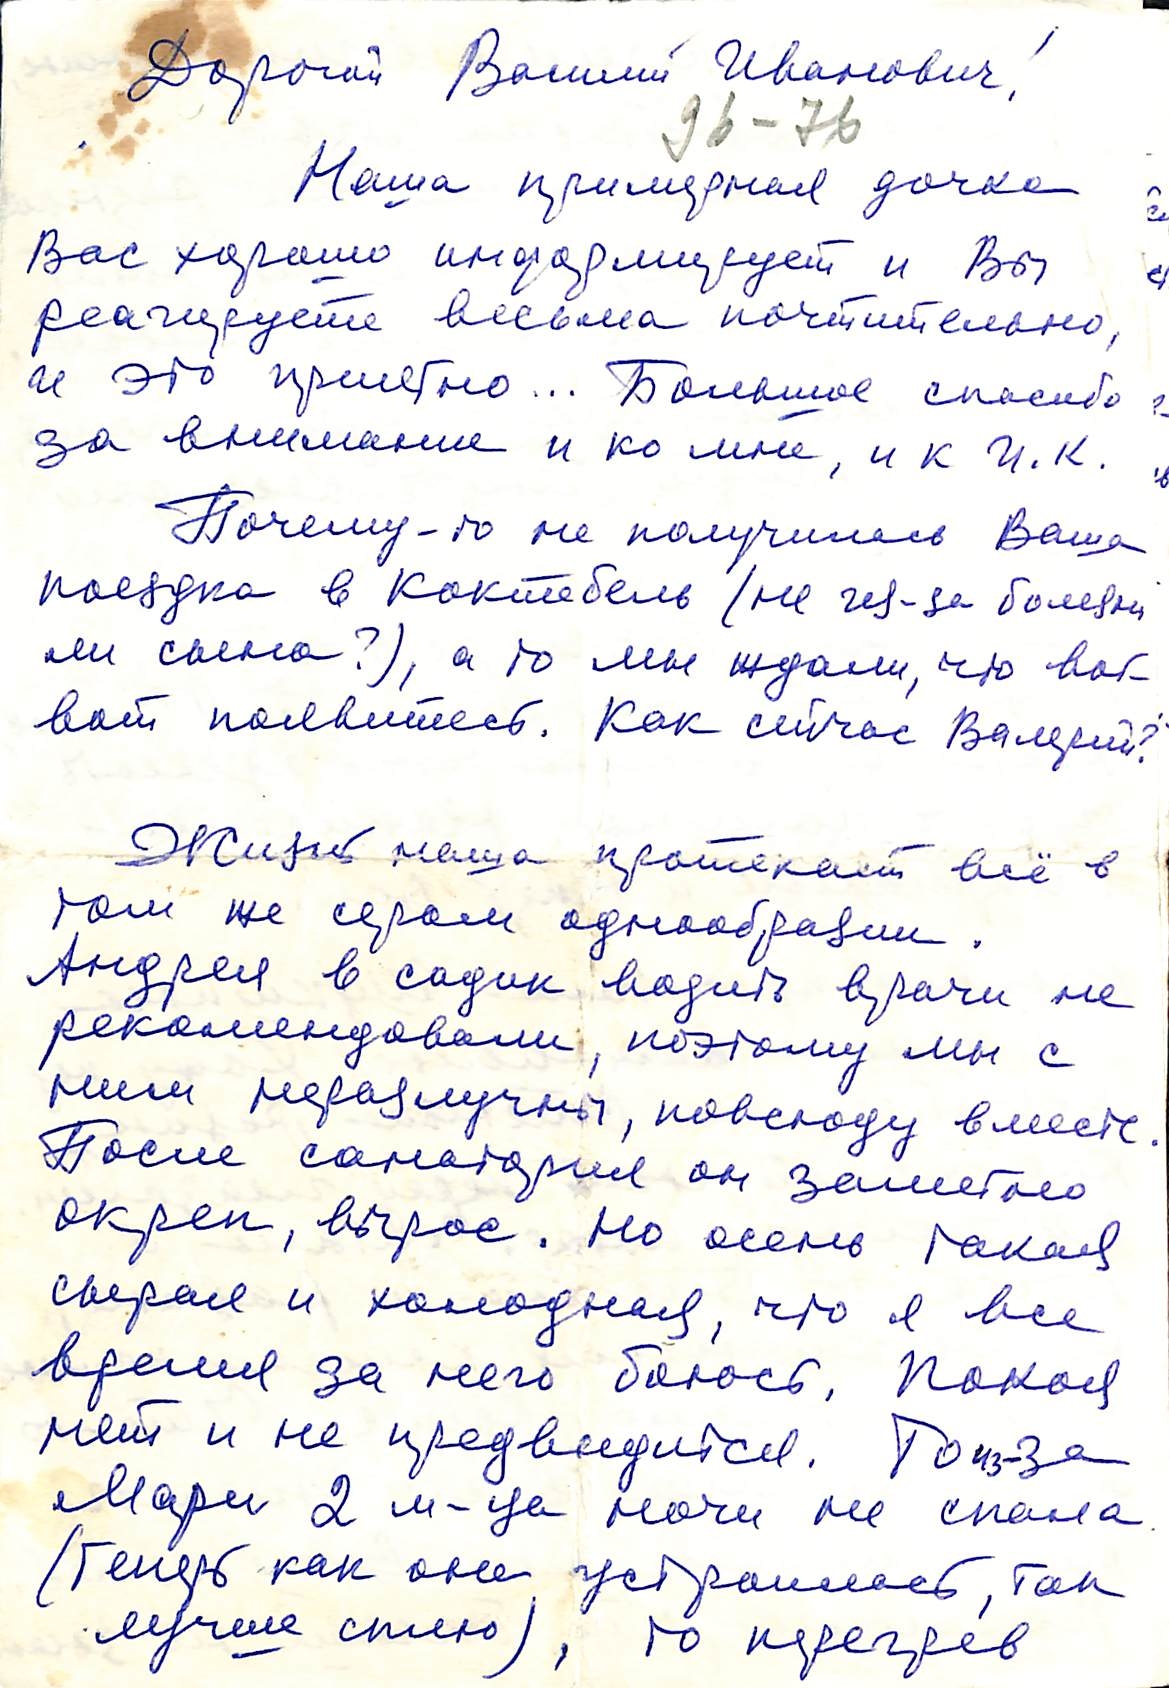 Дорогой Василий Иванович!
96-76
Наша примерная дочка
Вас хорошо информирует и Вы
реагируете весьма почтительно,
и это приятно... Большое спасибо
за внимание и ко мне, и к И.К.
Почему-то не получилась Ваша
поездка в Коктебель (не из-за болезни
ли сына?), а то мы ждали, что вот-
вот появитесь. Как сейчас Валерий?
Жизнь наша протекает всё в
том же сером однообразии.
Андрея в садик водить врачи не
рекомендовали, поэтому мы с
ним неразлучны, повсюду вместе.
После санатория он заметно
окреп, вырос. Но осень такая
сырая и холодная, что я все
время за него боюсь. Покоя
нет и не предвидится. То из-за
Мари 2 м-ца ночи не спала
(теперь как она устроилась, так
лучше сплю), то перегрев